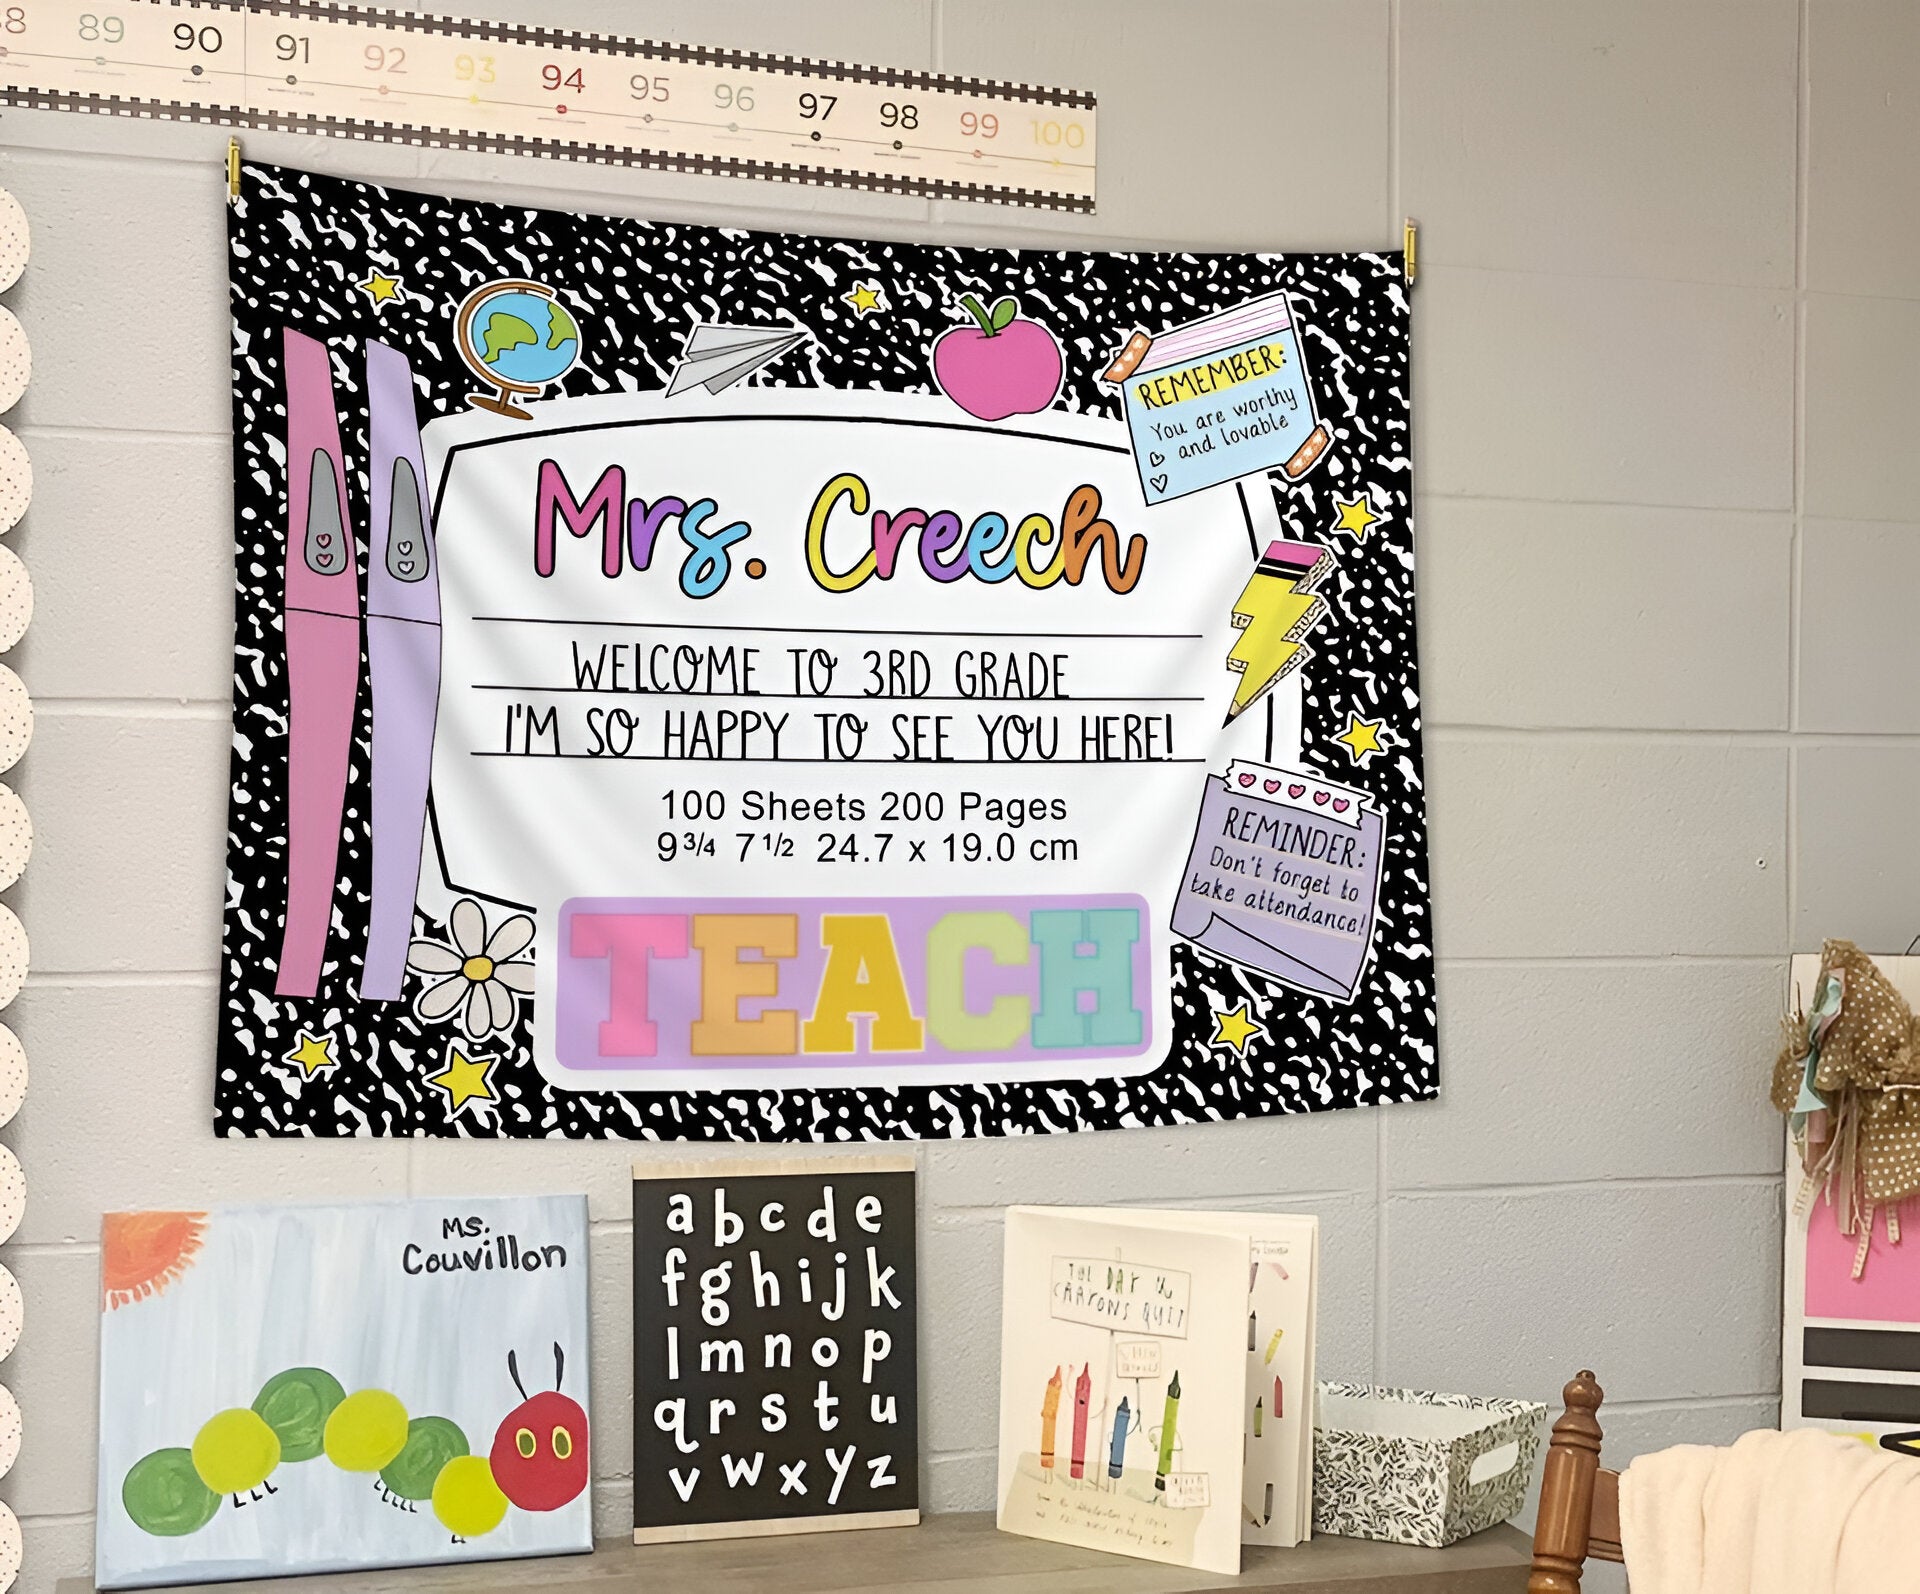 89 90 91 92 93 94 95 96 97 98 99 100
REMEMBER:
You are worthy
and lovable
Mrs. Creech
WELCOME TO 3RD GRADE
I'M SO HAPPY TO SEE YOU HERE!
100 Sheets 200 Pages
9 3/4 7 1/2 24.7 x 19.0 cm
REMINDER:
Don't forget to
take attendance!
TEACH
MS.
Couvillon
a b c d e
f g h i j k
l m n o p
q r s t u
v w x y z
THE DAY the
CRAYONS QUIT